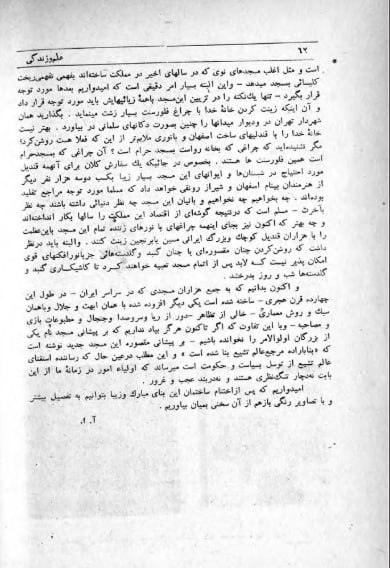 ۶۲
علم‌وزندگی
است و مثل اغلب مسجدهای نوی که در سالهای اخیر در مملکت ساخته‌اند بفهمی نفهمی ریخت
کلیسائی بمسجد میدهد - واین البته بسیار امر دقیقی است که امیدواریم بعدها مورد توجه
قرار بگیرد - تنها یک‌نکته را در تزیین این‌مسجد باهمهٔ زیبائیهایش باید مورد توجه قرار داد
و آن اینکه زینت کردن خانهٔ خدا با چراغ فلورسنت بسیار زشت مینماید . بگذارید همان
شهردار تهران در ودیوار میدانها را چنین بصورت دکانهای سلمانی در بیاورد . بهتر نیست
خانهٔ خدا را با قندیلهای ساخت اصفهان و بانوری ملایم‌تر از این که فعلا هست روشن‌کرد؟
مگر نشنیده‌اید که چراغی که بخانه رواست بمسجد حرام است ؟ آن چراغی که بمسجدحرام
است همین فلورسنت ها هستند . بخصوص در جائیکه یک سفارش کلان برای آنهمه قندیل
مورد احتیاج در شبستان‌ها و ایوانهای این مسجد بسیار زیبا بکسب دوسه هزار نفر دیگر
از هنرمندان بینام اصفهان و شیراز رونقی خواهد داد که مسلما مورد توجه مراجع تقلید
بوده‌اند . چه بخواهیم چه نخواهیم و بانیان این مسجد چه نظر دنیائی داشته باشند چه نظر
بآخرت - مسلم است که درنتیجه گوشه‌ای از اقتصاد این مملکت را سالها بکار انداخته‌اند
و چه بهتر که اکنون نیز بجای اینهمه چراغهای با نورهای زننده تمام این مسجد باین‌عظمت
را با هزاران قندیل کوچک وبزرگ ایرانی مسین یابرنجین زینت کنند . والبته باید درنظر
داشت که روشن‌کردن چنان مقصوره‌ای یا چنان گنبد وگلدسته‌هائی جزبانورافکنهای قوی
امکان پذیر نیست کسه لابد پس از اتمام مسجد تعبیه خواهند کرد تا کاشیکاری گنبد و
گلدسته‌ها شب و روز بدرخشد .
و اکنون بدانیم که به جمع هزاران مسجدی که در سراسر ایران - در طول این
چهارده قرن هجری - ساخته شده است یکی دیگر افزوده شده با همان ابهت و جلال وباهمان
سبک و روش معماری - خالی از تظاهر -دور از ریا وسروصدا وجنجال و مطبوعات بازی
و مصاحبه - وبا این تفاوت که اگر تاکنون هرگز بیاد نداریم که بر پیشانی مسجد نام یکی
از بزرگان اولوالامر را نخوانده باشیم - بر پیشانی مقصوره این مسجد جدید نوشته است
که «بنابرارادهٔ مرجع‌عالم تشیع بنا شده است » و این مطلب درعین حال که رساننده استغنای
عالم تشیع از توسل بسیاست و حکومت است میرساند که اولیاء امور در زمانهٔ ما از این
بابت نه‌دچار تنگ‌نظری هستند و نه‌دربند عجب و غرور .
امیدواریم که پس ازاختتام ساختمان این بنای مبارک وزیبا بتوانیم به تفصیل بیشتر
و با تصاویر رنگی بازهم از آن سخنی بمیان بیاوریم .
آ. ا.